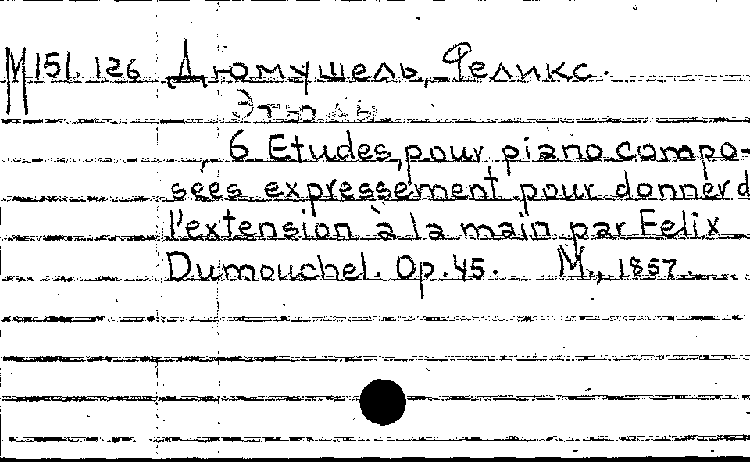 М151.126 Дюмушель, Феликс.
Этюды
6 Etudes, pour piano compo-
sées expressement pour donner d
l'extension à la main par Felix
Dumouchel. Op. 45. М., 1857.